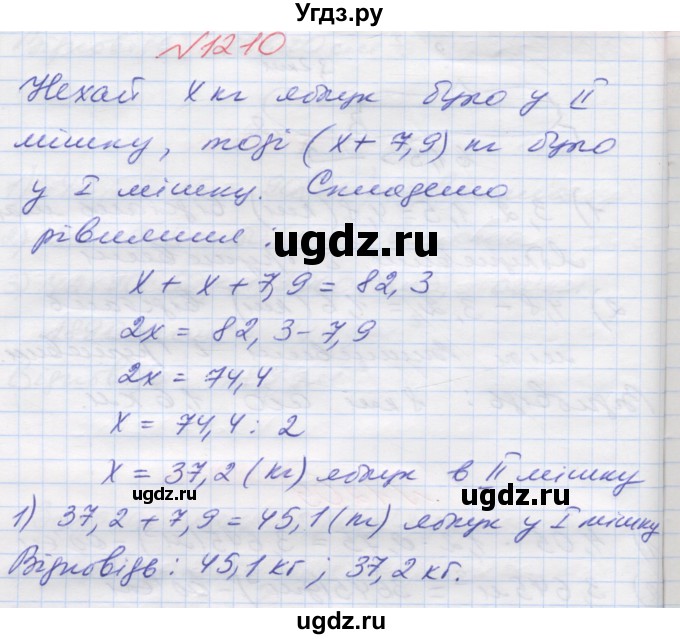 Угдз.ру
№1210
Нехай x кг яблук було у II
мішку, тоді (x + 7,9) кг було
у I мішку. Складемо
рівняння:
ugdz.ru
x + x + 7,9 = 82,3
2x = 82,3 - 7,9
2x = 74,4
x = 74,4 : 2
x = 37,2 (кг) яблук в II мішку
ugdz.ru ugdz.ru
1) 37,2 + 7,9 = 45,1 (кг) яблук у I мішку
Відповідь: 45,1 кг; 37,2 кг.
ugdz.ru ugdz.ru